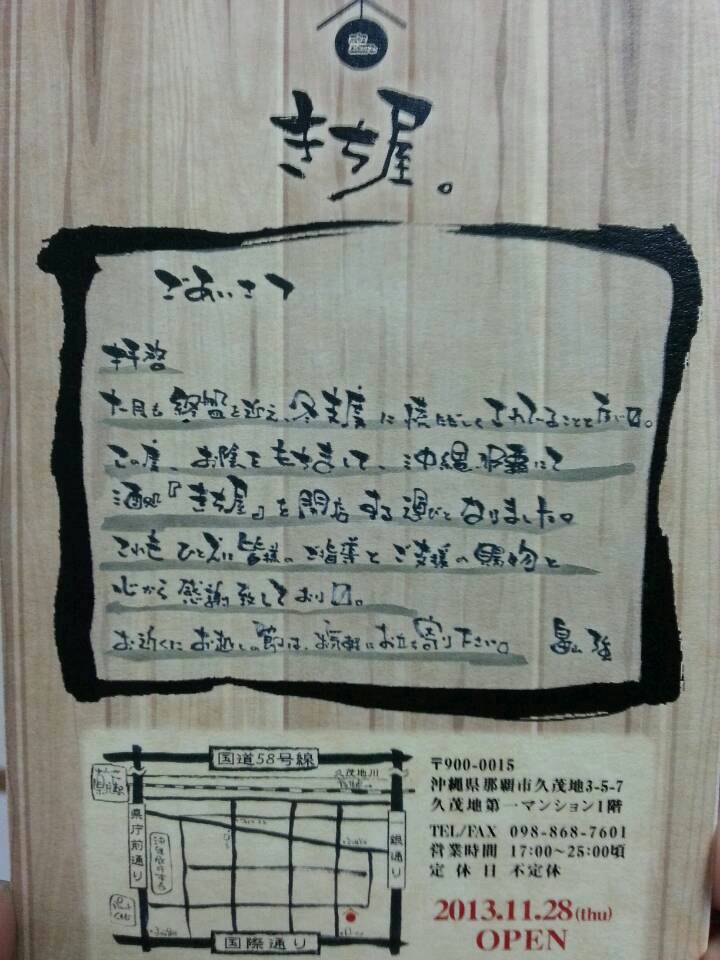 きち屋。
ごあいさつ
拝啓
十一月も終盤を迎え、冬支度に慌ただしくされていることと存じ〼。
この度、お陰をもちまして、沖縄那覇にて
酒処『きち屋』を開店する運びとなりました。
これもひとえに皆様のご指導とご支援の賜物と
心から感謝致しており〼。
お近くにお越しの節は、お気軽にお立ち寄り下さい。
国道58号線
久茂地川
県庁前通り
一銀通り
国際通り
〒900-0015
沖縄県那覇市久茂地3-5-7
久茂地第一マンション1階
TEL/FAX 098-868-7601
営業時間 17:00~25:00頃
定休日 不定休
2013.11.28(thu)
OPEN